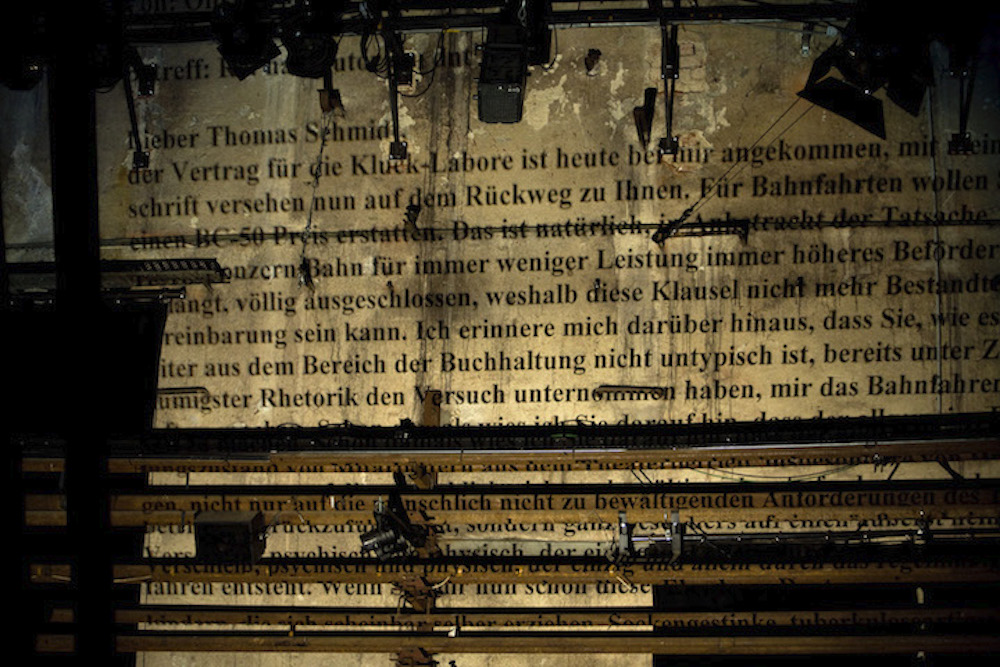 Lieber Thomas Schmidt,
der Vertrag für die Kluck-Labore ist heute bei mir angekommen, mit mein
schrift versehen nun auf dem Rückweg zu Ihnen. Für Bahnfahrten wollen
einen BC-50 Preis erstatten. Das ist natürlich, in Anbetracht der Tatsache
onzern Bahn für immer weniger Leistung immer höheres Beförder
langt, völlig ausgeschlossen, weshalb diese Klausel nicht mehr Bestandte
reinbarung sein kann. Ich erinnere mich darüber hinaus, dass Sie, wie es
iter aus dem Bereich der Buchhaltung nicht untypisch ist, bereits unter Z
umigster Rhetorik den Versuch unternommen haben, mir das Bahnfahren
wies ich Sie darauf hin, dass
aus dem
gen, nicht nur auf die menschlich nicht zu bewältigenden Anforderungen des
sondern ganz besonders auf einen
Verschleiß, psychisch und physisch, der einzig und allein durch das
fahren entsteht. Wenn wir nun schon diese
kindern, die sich scheinbar selber erziehen, Sockengestinke,